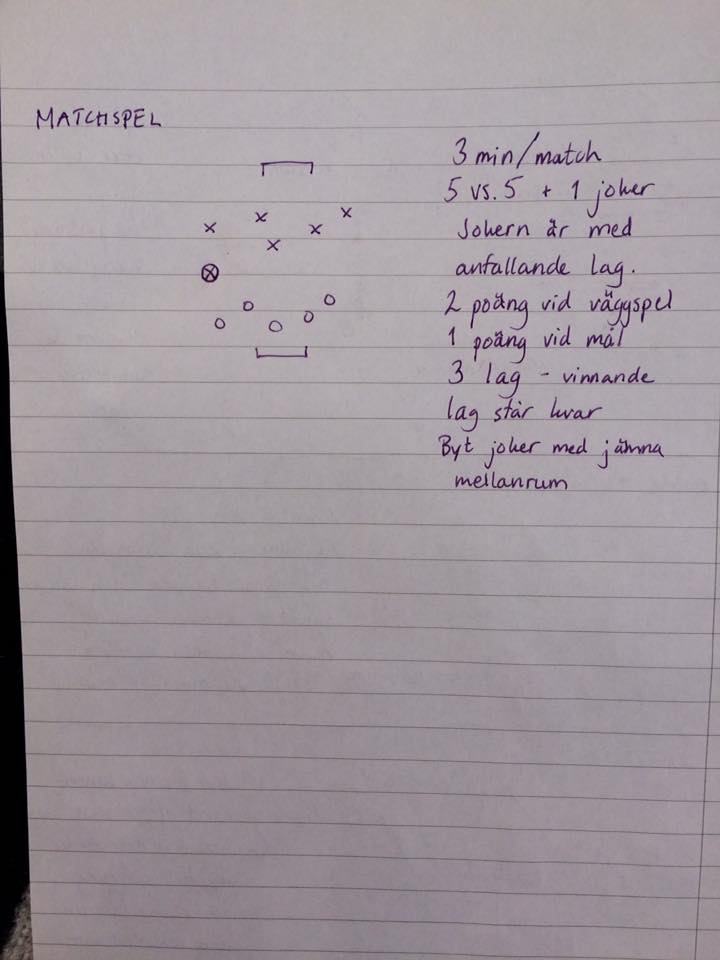 MATCHSPEL
3 min/match
5 vs. 5 + 1 joker
Jokern är med
anfallande lag.
2 poäng vid väggspel
1 poäng vid mål
3 lag - vinnande
lag står kvar
Byt joker med jämna
mellanrum